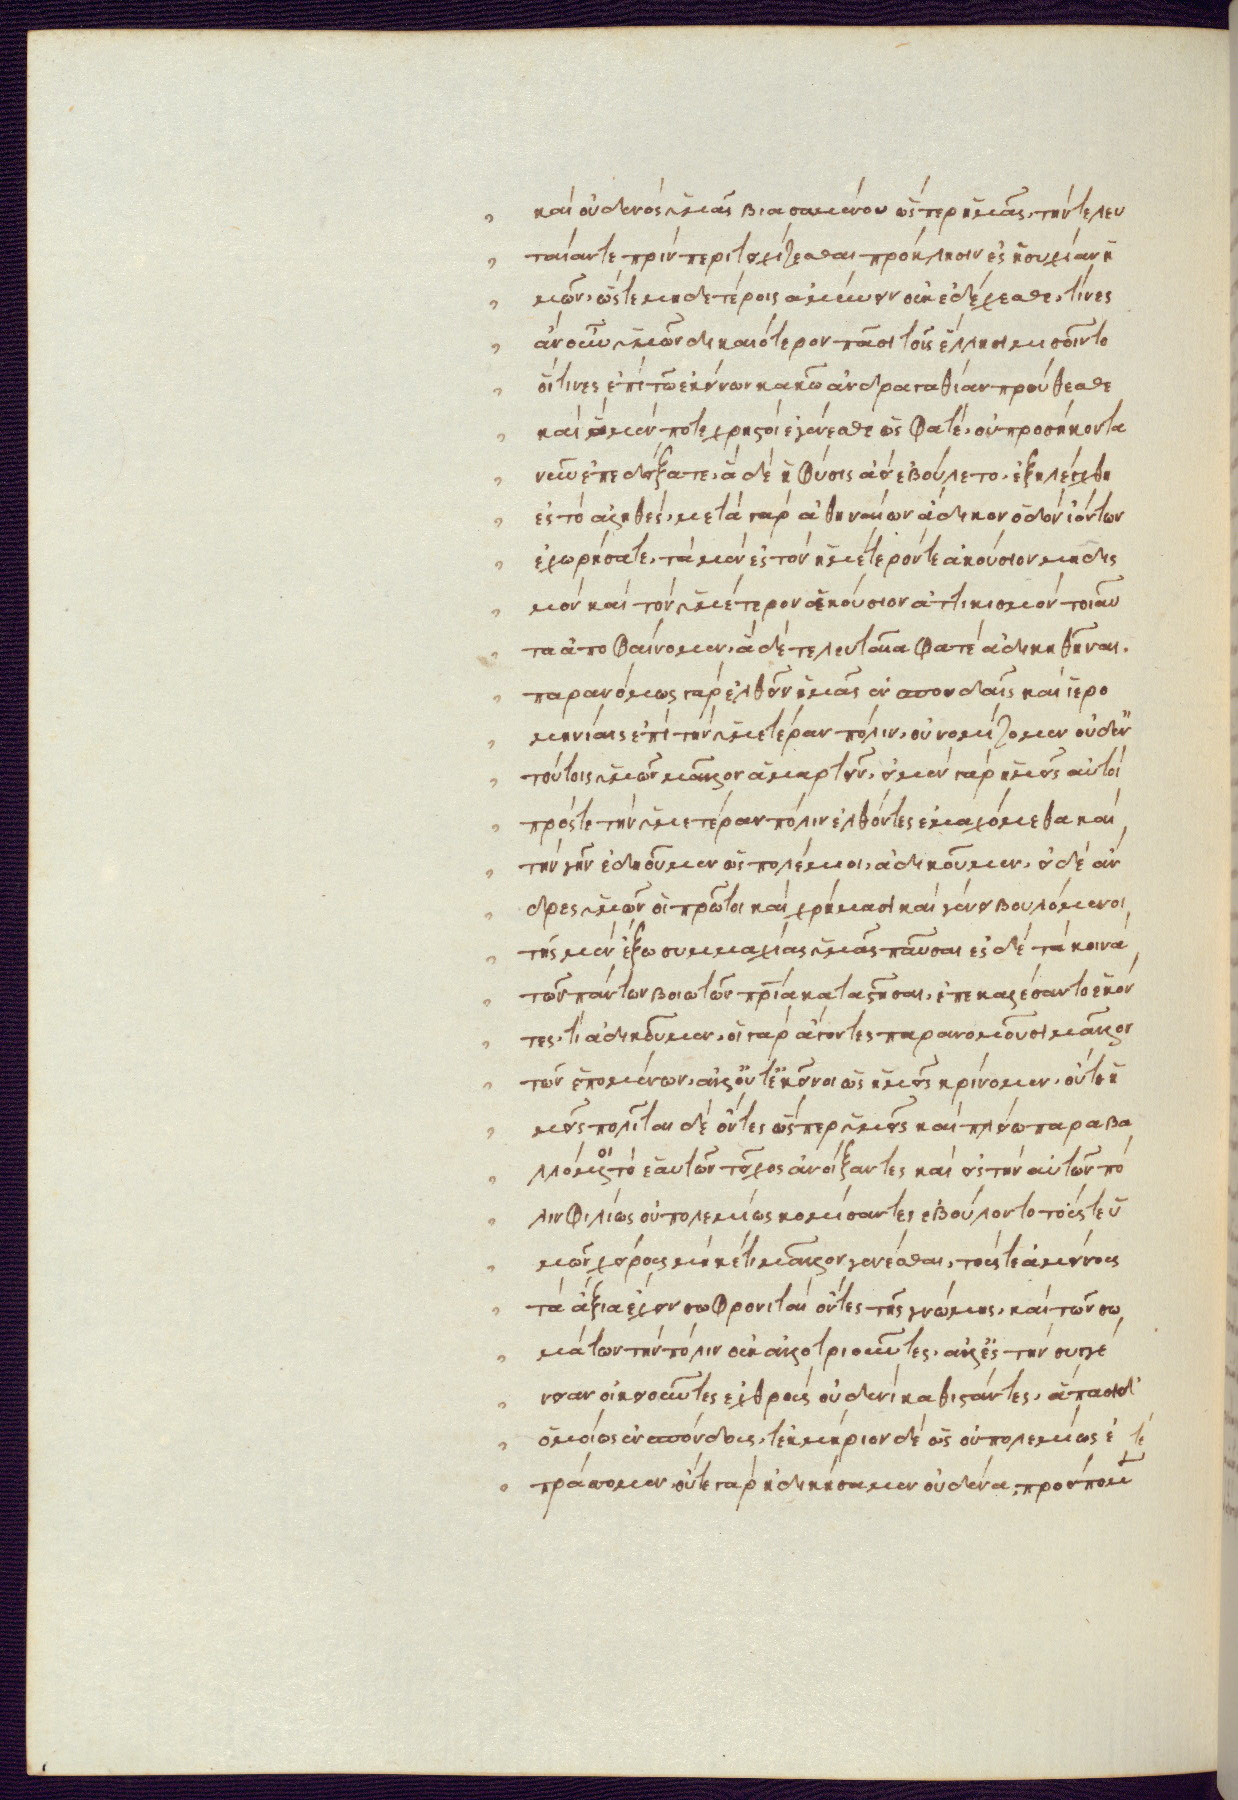 καὶ οὐδενὸς ὑμᾶς βιασαμένου ὥσπερ ἡμᾶς. τὴν τελευ
ταίαν τε πρὶν περιτειχίζεσθαι πρόκλησιν ἐς ἡσυχίαν ἡ
μῶν, ὥστε μηδετέροις ἀμύνειν οὐκ ἐδέχεσθε. τίνες
ἂν οὖν ὑμῶν δικαιότερον πᾶσι τοῖς ἕλλησι μισοῖντο
οἵτινες ἐπὶ τῶ ἐκείνων κακῶ ἀνδραγαθίαν προύθεσθε
καὶ ἃ μέν ποτε χρηστοὶ ἐγένεσθε ὥς φατὲ, οὐ προσήκοντα
νῦν ἐπεδείξατε, ἃ δὲ ἡ φύσις ἀεὶ ἐβούλετο, ἐξηλέγχθη
ἐς τὸ ἀληθές, μετὰ γὰρ ἀθηναίων ἄδικον ὁδὸν ἰόντων
ἐχωρήσατε. τὰ μὲν ἐς τὸν ἡμέτερόν τε ἀκούσιον μηδισ
μὸν καὶ τὸν ὑμέτερον ἑκούσιον ἀττικισμὸν τοιαῦ
τα ἀποφαίνομεν, ἃ δὲ τελευταῖα φατὲ ἀδικηθῆναι.
παρανόμως γὰρ ἐλθεῖν ἡμᾶς ἐν σπονδαῖς καὶ ἱερο
μηνίαις ἐπὶ τὴν ὑμετέραν πόλιν, οὐ νομίζομεν οὐδ' ἐν
τούτοις ὑμῶν μᾶλλον ἁμαρτεῖν, εἰ μὲν γὰρ ἡμεῖς αὐτοὶ
πρός τε τὴν ὑμετέραν πόλιν ἐλθόντες ἐμαχόμεθα καὶ
τὴν γῆν ἐδηοῦμεν ὡς πολέμιοι, ἀδικοῦμεν, εἰ δὲ ἄν
δρες ὑμῶν οἱ πρῶτοι καὶ χρήμασι καὶ γένει βουλόμενοι
τῆς μὲν ἔξω συμμαχίας ὑμᾶς παῦσαι ἐς δὲ τὰ κοινὰ
τῶν πάντων βοιωτῶν πάτρια καταστῆσαι, ἐπεκαλέσαντο ἑκόν
τες, τί ἀδικοῦμεν, οἱ γὰρ ἄγοντες παρανομοῦσι μᾶλλον
τῶν ἑπομένων, ἀλλ' οὔτ' ἐκεῖνοι ὡς ἡμεῖς κρίνομεν, οὔτε ἡ
μεῖς πολῖται δὲ ὄντες ὥσπερ ὑμεῖς καὶ πλείω παραβα
λλόμενοι τὸ ἑαυτῶν τεῖχος ἀνοίξαντες καὶ εἰς τὴν αὑτῶν πό
λιν φιλίως οὐ πολεμίως κομίσαντες ἐβούλοντο τούς τε ὑ
μῶν χείρους μηκέτι μᾶλλον γενέσθαι, τούς τε ἀμείνους
τὰ ἄξια ἔχειν σωφρονισταὶ ὄντες τῆς γνώμης, καὶ τῶν σω
μάτων τὴν πόλιν οὐκ ἀλλοτριοῦντες, ἀλλ' ἐς τὴν συγγέ
νειαν οἰκειοῦντες ἐχθροὺς οὐδενὶ καθιστάντες, ἅπασι δ'
ὁμοίως ἐνσπόνδους, τεκμήριον δὲ ὡς οὐ πολεμίως ἐ
πράσσομεν, οὔτε γὰρ ἠδικήσαμεν οὐδένα, προείπομέν τε